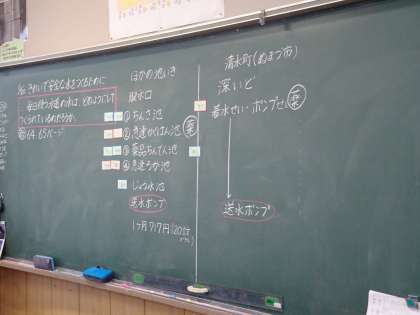 きれいで安全な水をつくるために
毎日使う水道の水は、どのようにして
つくられているのだろうか。
64.65ページ
ほかの池いき
取水口
① ちんさ池
② 急速かくはん池 薬
③ 薬品ちんでん池
④ 急速ろか池
じょう水池
送水ポンプ
1ヶ月717円
清水町(ぬまづ市)
深いど
着水せい・ポンプせい
送水ポンプ